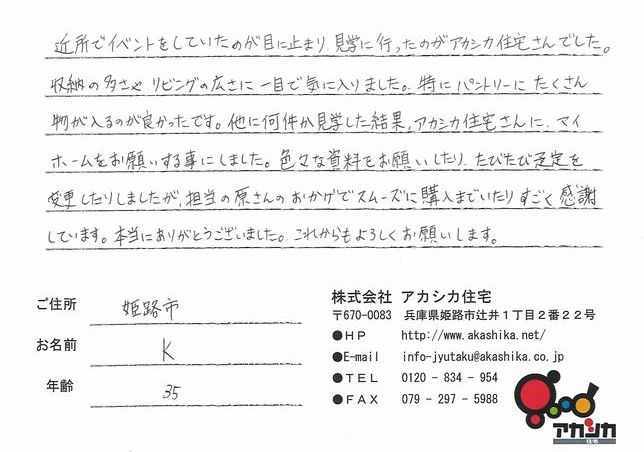 近所でイベントをしていたのが目に止まり、見学に行ったのがアカシカ住宅さんでした。
収納の多さやリビングの広さに一目で気に入りました。特にパントリーにたくさん
物が入るのが良かったです。他に何件か見学した結果、アカシカ住宅さんに、マイ
ホームをお願いする事にしました。色々な資料をお願いしたり、たびたび予定を
変更したりしましたが、担当の原さんのおかげでスムーズに購入までいたりすごく感謝
しています。本当にありがとうございました。これからもよろしくお願いします。
ご住所 姫路市
お名前 K
年齢 35
株式会社 アカシカ住宅
〒670-0083 兵庫県姫路市辻井1丁目2番22号
●HP http://www.akashika.net/
●E-mail info-jyutaku@akashika.co.jp
●TEL 0120-834-954
●FAX 079-297-5988
アカシカ
住宅